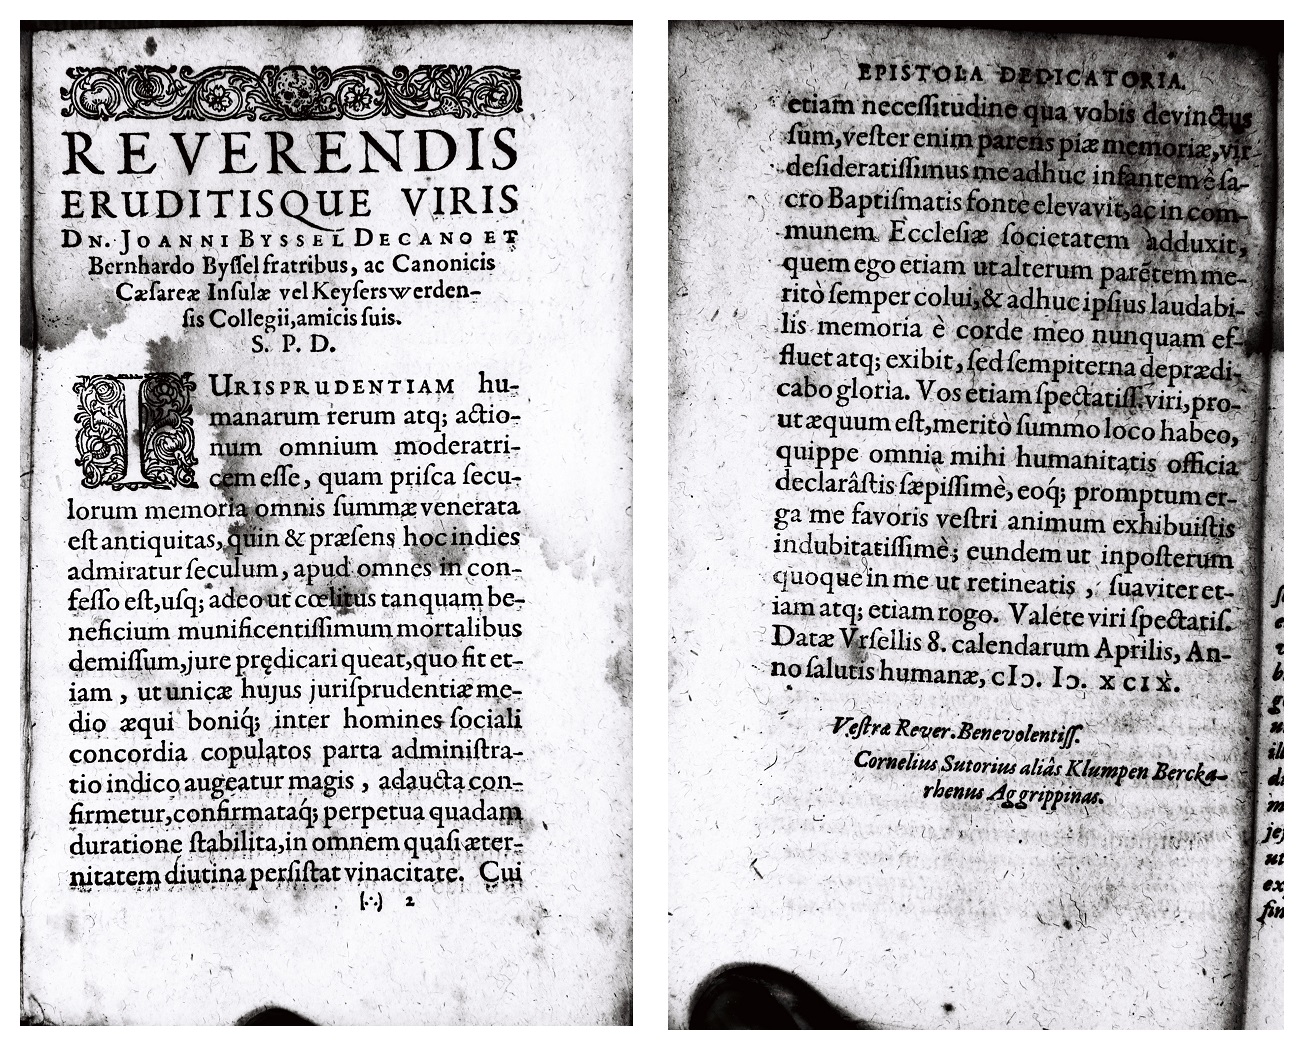 REVERENDIS
ERUDITISQUE VIRIS
DN. JOANNI BYSSEL DECANO ET
Bernhardo Byſſel fratribus, ac Canonicis
Cæſareæ Inſulæ vel Keyſerswerden-
ſis Collegii, amicis ſuis.
S. P. D.
IURISPRUDENTIAM hu-
manarum rerum atq; actio-
num omnium moderatri-
cem eſſe, quam priſca ſecu-
lorum memoria omnis ſummæ venerata
eſt antiquitas, quin & præſens hoc indies
admiratur ſeculum, apud omnes in con-
feſſo eſt, uſq; adeo ut cœlitus tanquam be-
neficium munificentiſſimum mortalibus
demiſſum, jure prędicari queat, quo fit et-
iam, ut unicæ hujus juriſprudentiæ me-
dio æqui boniq́; inter homines ſociali
concordia copulatos parta adminiſtra-
tio indico augeatur magis, adaucta con-
firmetur, confirmataq́; perpetua quadam
duratione ſtabilita, in omnem quaſi æter-
nitatem diutina perſiſtat vinacitate. Cui
(∴) 2
EPISTOLA DEDICATORIA.
etiam neceſſitudine qua vobis devinctus
ſum, veſter enim parens piæ memoriæ, vir
deſideratiſſimus me adhuc infantem è ſa-
cro Baptiſmatis fonte elevavit, ac in com-
munem Eccleſiæ ſocietatem adduxit,
quem ego etiam ut alterum parẽtem me-
ritò ſemper colui, & adhuc ipſius laudabi-
lis memoria è corde meo nunquam ef-
fluet atq; exibit, ſed ſempiterna deprædi-
cabo gloria. Vos etiam ſpectatiſſ. viri, pro-
ut æquum eſt, meritò ſummo loco habeo,
quippe omnia mihi humanitatis officia
declarâſtis ſæpiſſimè, eoq́; promptum er-
ga me favoris veſtri animum exhibuiſtis
indubitatiſſimè; eundem ut inpoſterum
quoque in me ut retineatis, ſuaviter et-
iam atq; etiam rogo. Valete viri ſpectatiſ.
Datæ Vrſellis 8. calendarum Aprilis, An-
no ſalutis humanæ, cIↄ. Iↄ. XCIX.
Veſtræ Rever. Benevolentiſſ.
Cornelius Sutorius aliâs Klumpen Bercka-
rhenus Aggrippinas.